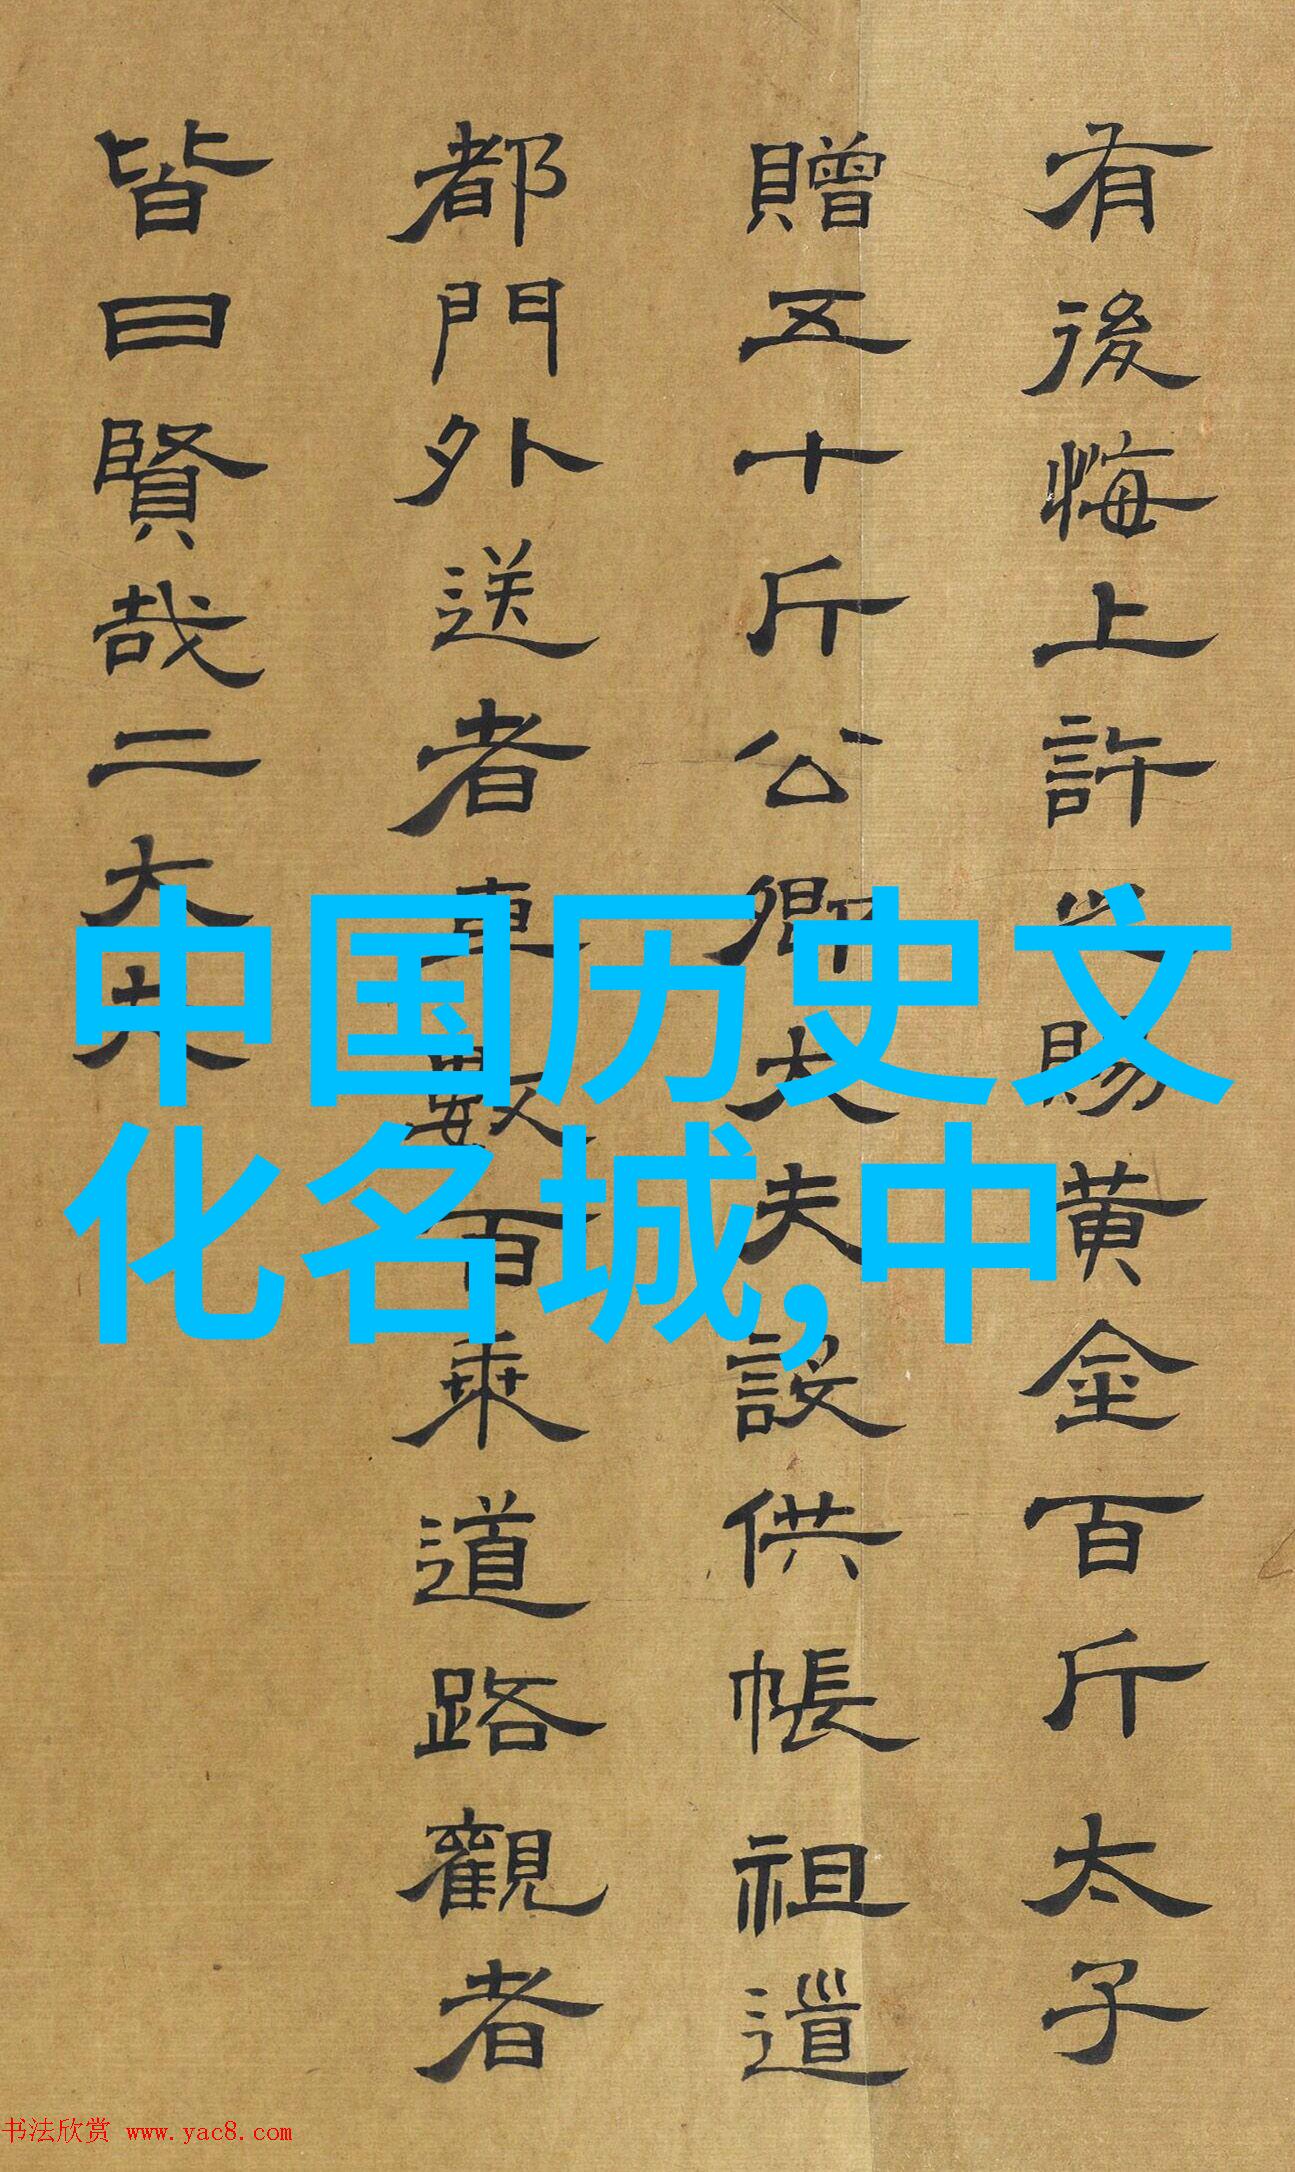 有後悔上許之賜黃金百斤太子
贈五十斤公卿大夫設供帳祖道
都門外送者車數百乘道路觀者
皆曰賢哉二大夫
中国历史文
化名城,中
书法欣赏 www.yac8.com